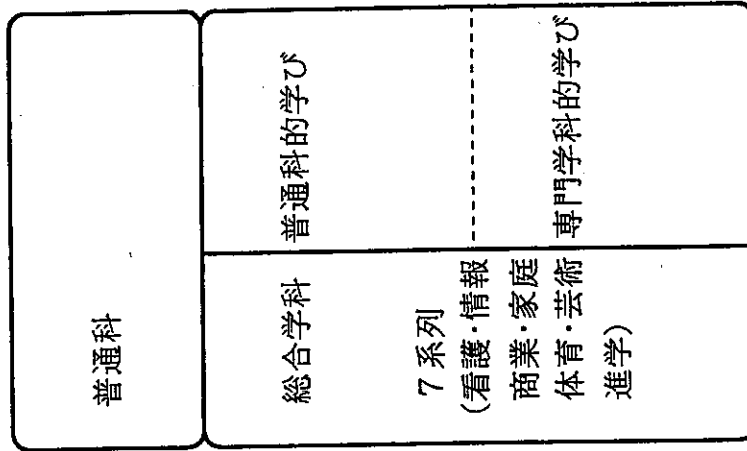 普通科
総合学科
7系列
(看護・情報
商業・家庭
体育・芸術
進学)
普通科的学び
専門学科的学び